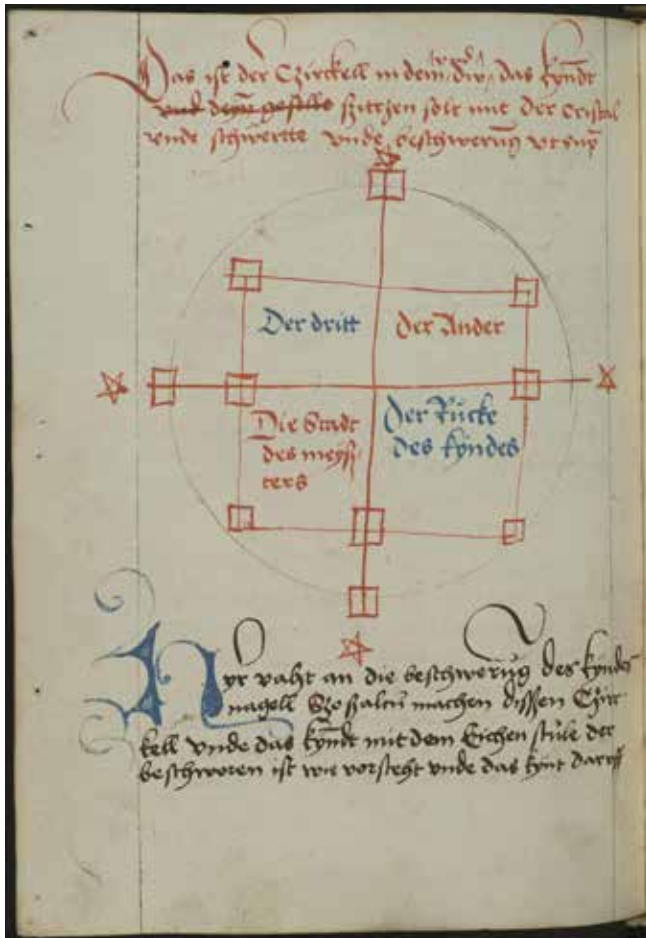 Das ist der Czirckell in dem du das kyndt
vnd deyn geselle syttzen solt mit der Cristal
vnde schwertte vnde beschwerung
Der dritt
der Ander
Die Stadt
des meys
ters
der Rücke
des kyndes
HYr vaht an die beschwerung des kyndes
nagell Szo saltu machen dissen Cyrc
kell vnde das kyndt mit dem Eichen stule der
beschworen ist wie vorsteht vnde das kynt daruff